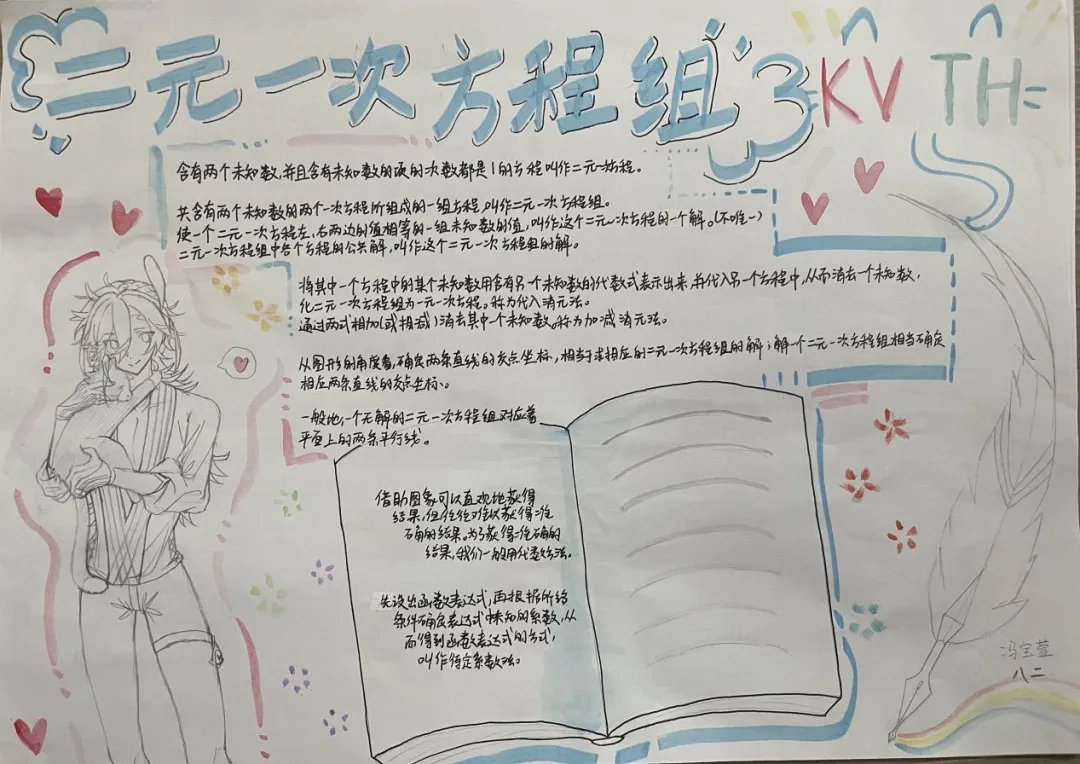 二元一次方程组
KV TH
含有两个未知数,并且含有未知数的项的次数都是1的方程叫作二元一次方程。
共含有两个未知数的两个一次方程所组成的一组方程,叫作二元一次方程组。
使一个二元一次方程左、右两边的值相等的一组未知数的值,叫作这个二元一次方程的一个解。(不唯一)
二元一次方程组中各个方程的公共解,叫作这个二元一次方程组的解。
将其中一个方程中的某个未知数用含有另一个未知数的代数式表示出来,并代入另一个方程中,从而消去一个未知数,
化二元一次方程组为一元一次方程。称为代入消元法。
通过两式相加(或相减)消去其中一个未知数。称为加减消元法。
从图形的角度看,确定两条直线的交点坐标,相当于求相应的二元一次方程组的解;解一个二元一次方程组相当确定
相应两条直线的交点坐标。
一般地,一个无解的二元一次方程组对应着
平面上的两条平行线。
借助图象可以直观地获得
结果,但往往难以获得准
确的结果。为了获得准确的
结果,我们一般用代数方法。
先设出函数表达式,再根据所给
条件确定表达式中未知的系数,从
而得到函数表达式的方式,
叫作待定系数法。
冯宝萱
八二